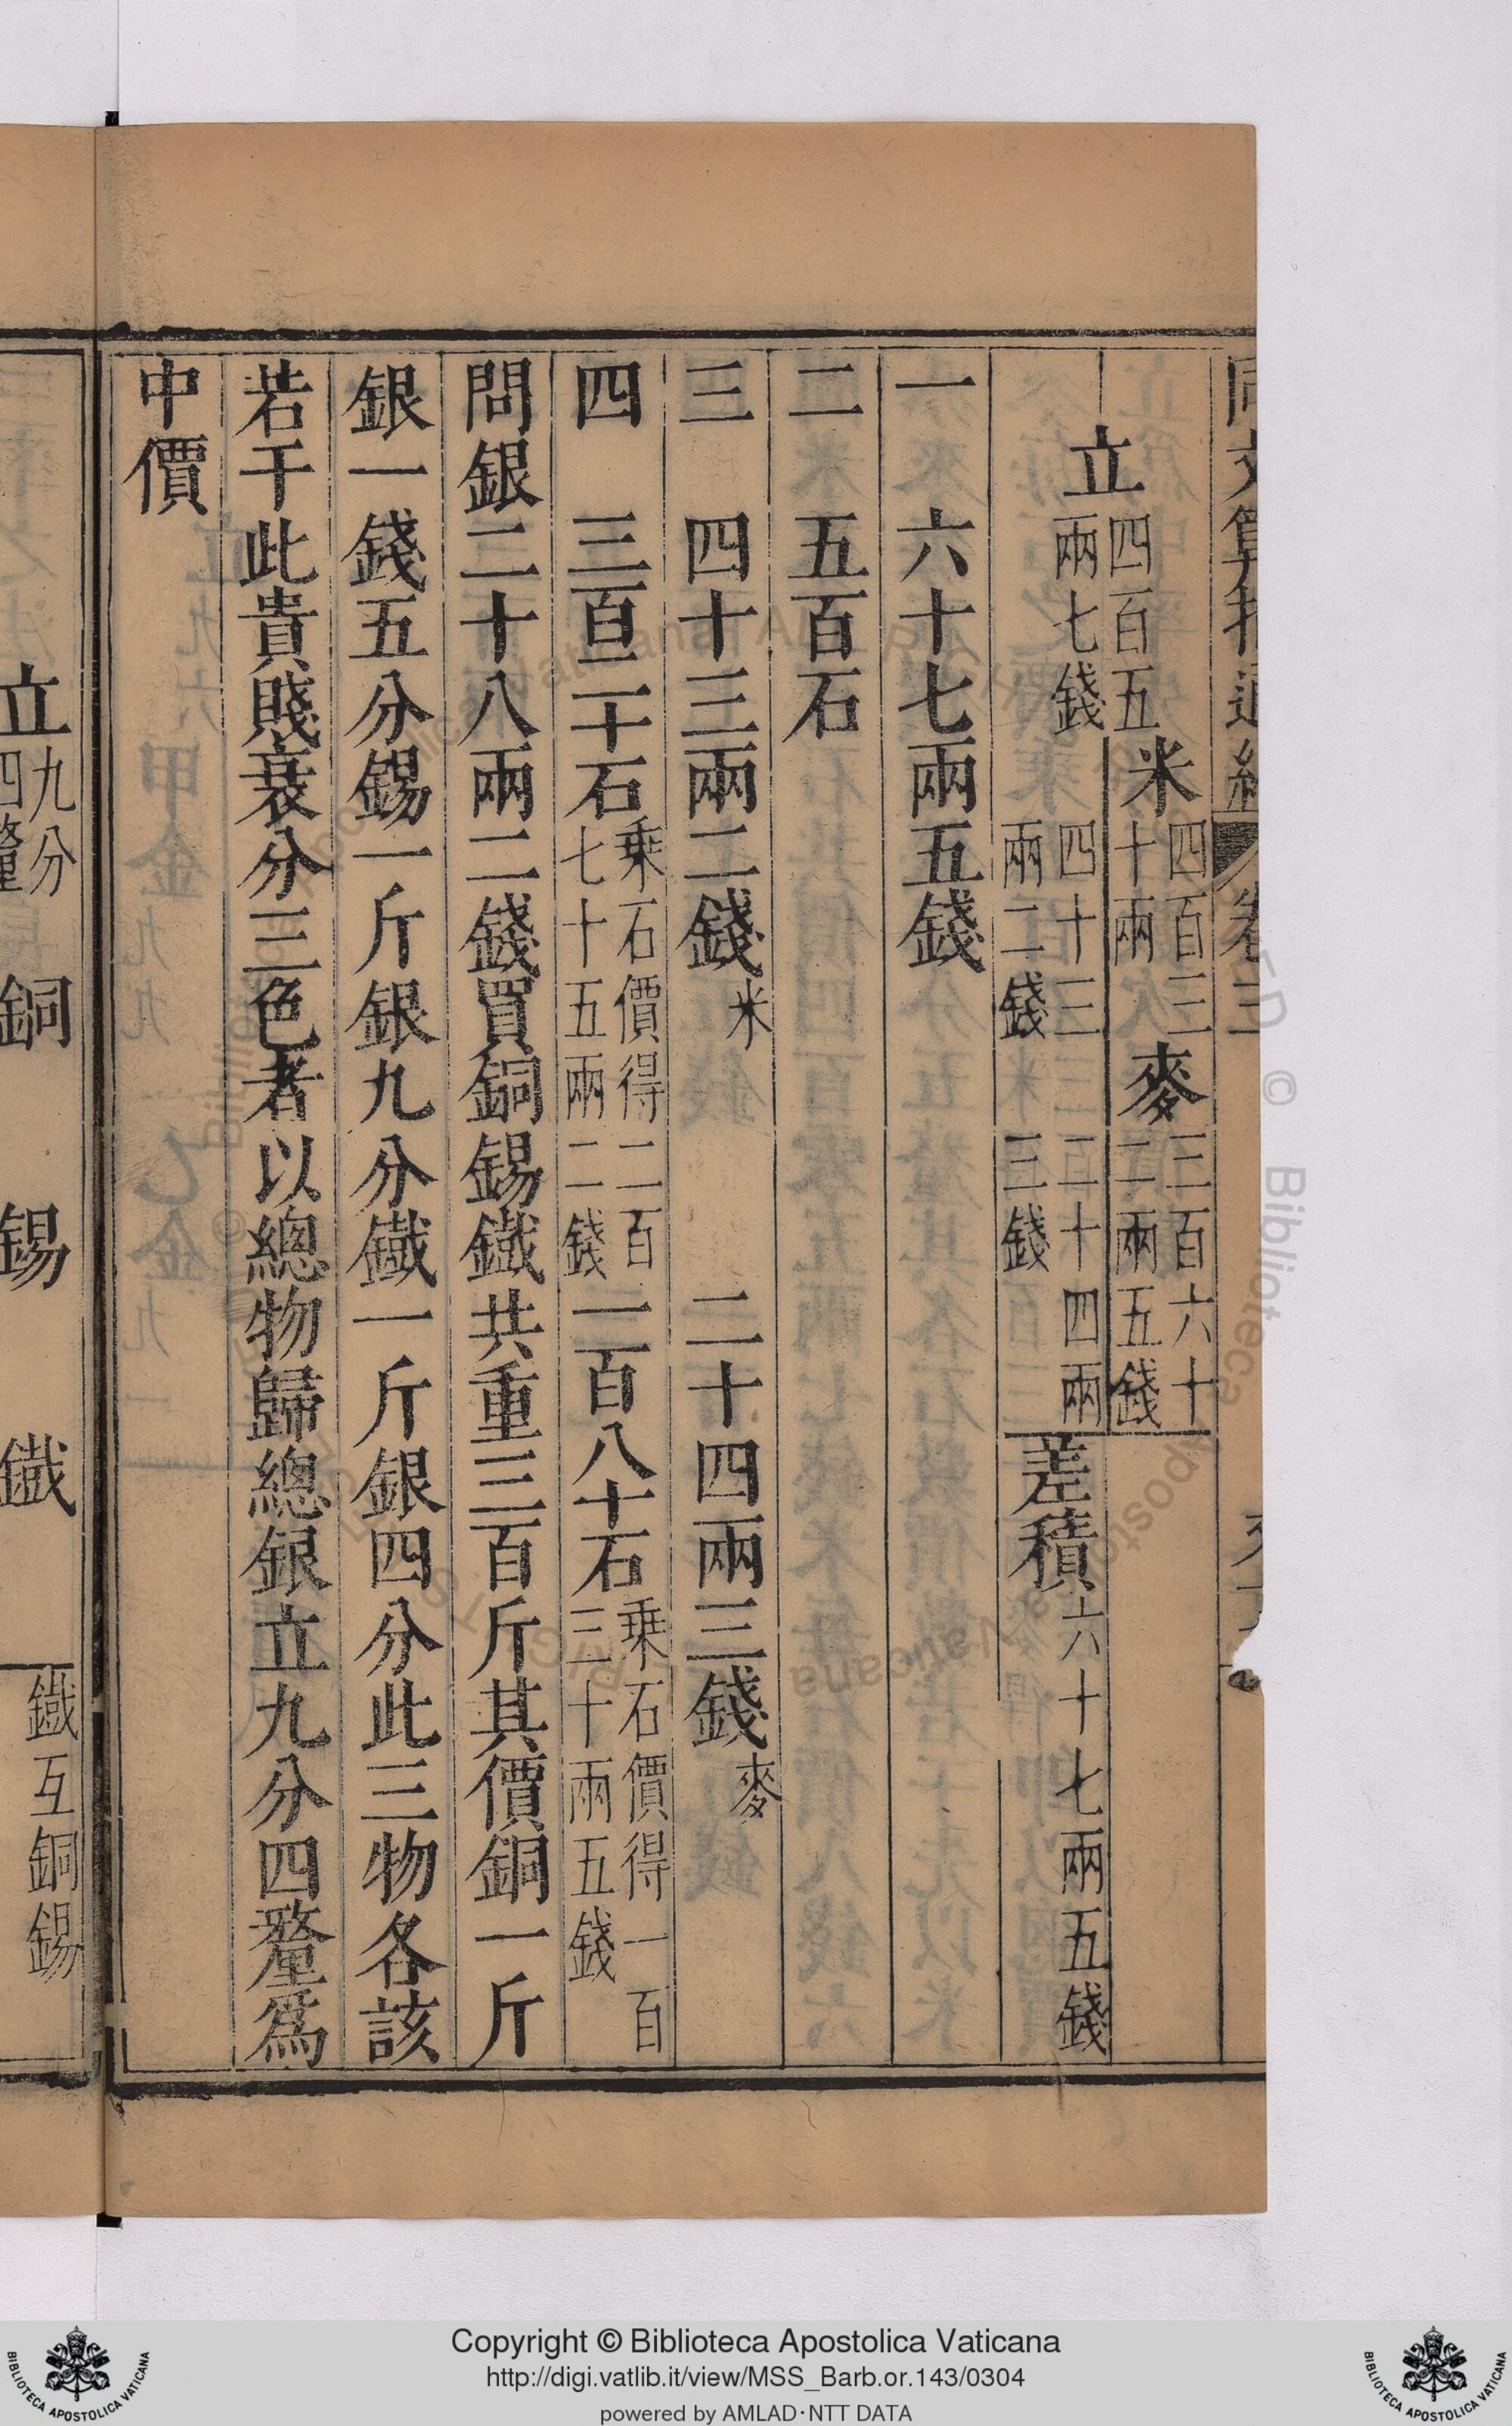 立 四百五 兩七錢
米 四百三 十兩 麥 三百六十 二兩五錢
四十三 兩二錢 二十四兩 三錢
差積 六十七兩五錢
一 六十七兩五錢
二 五百石
三 四十三兩二錢 米 二十四兩三錢 麥
四 三百二十石 乗石價得二百 七十五兩二錢 一百八十石 乗石價得一百 三十兩五錢
問銀二十八兩二錢買銅錫鐵共重三百斤其價銅一斤
銀一錢五分錫一斤銀九分鐵一斤銀四分此三物各該
若干此貴賤衰分三色者以總物歸總銀立九分四釐爲
中價
立 九分 四釐
銅
錫
鐵
鐵互銅錫
Copyright © Biblioteca Apostolica Vaticana
http://digi.vatlib.it/view/MSS_Barb.or.143/0304
powered by AMLAD·NTT DATA
BIBLIOTECA APOSTOLICA VATICANA
BIBLIOTECA APOSTOLICA VATICANA